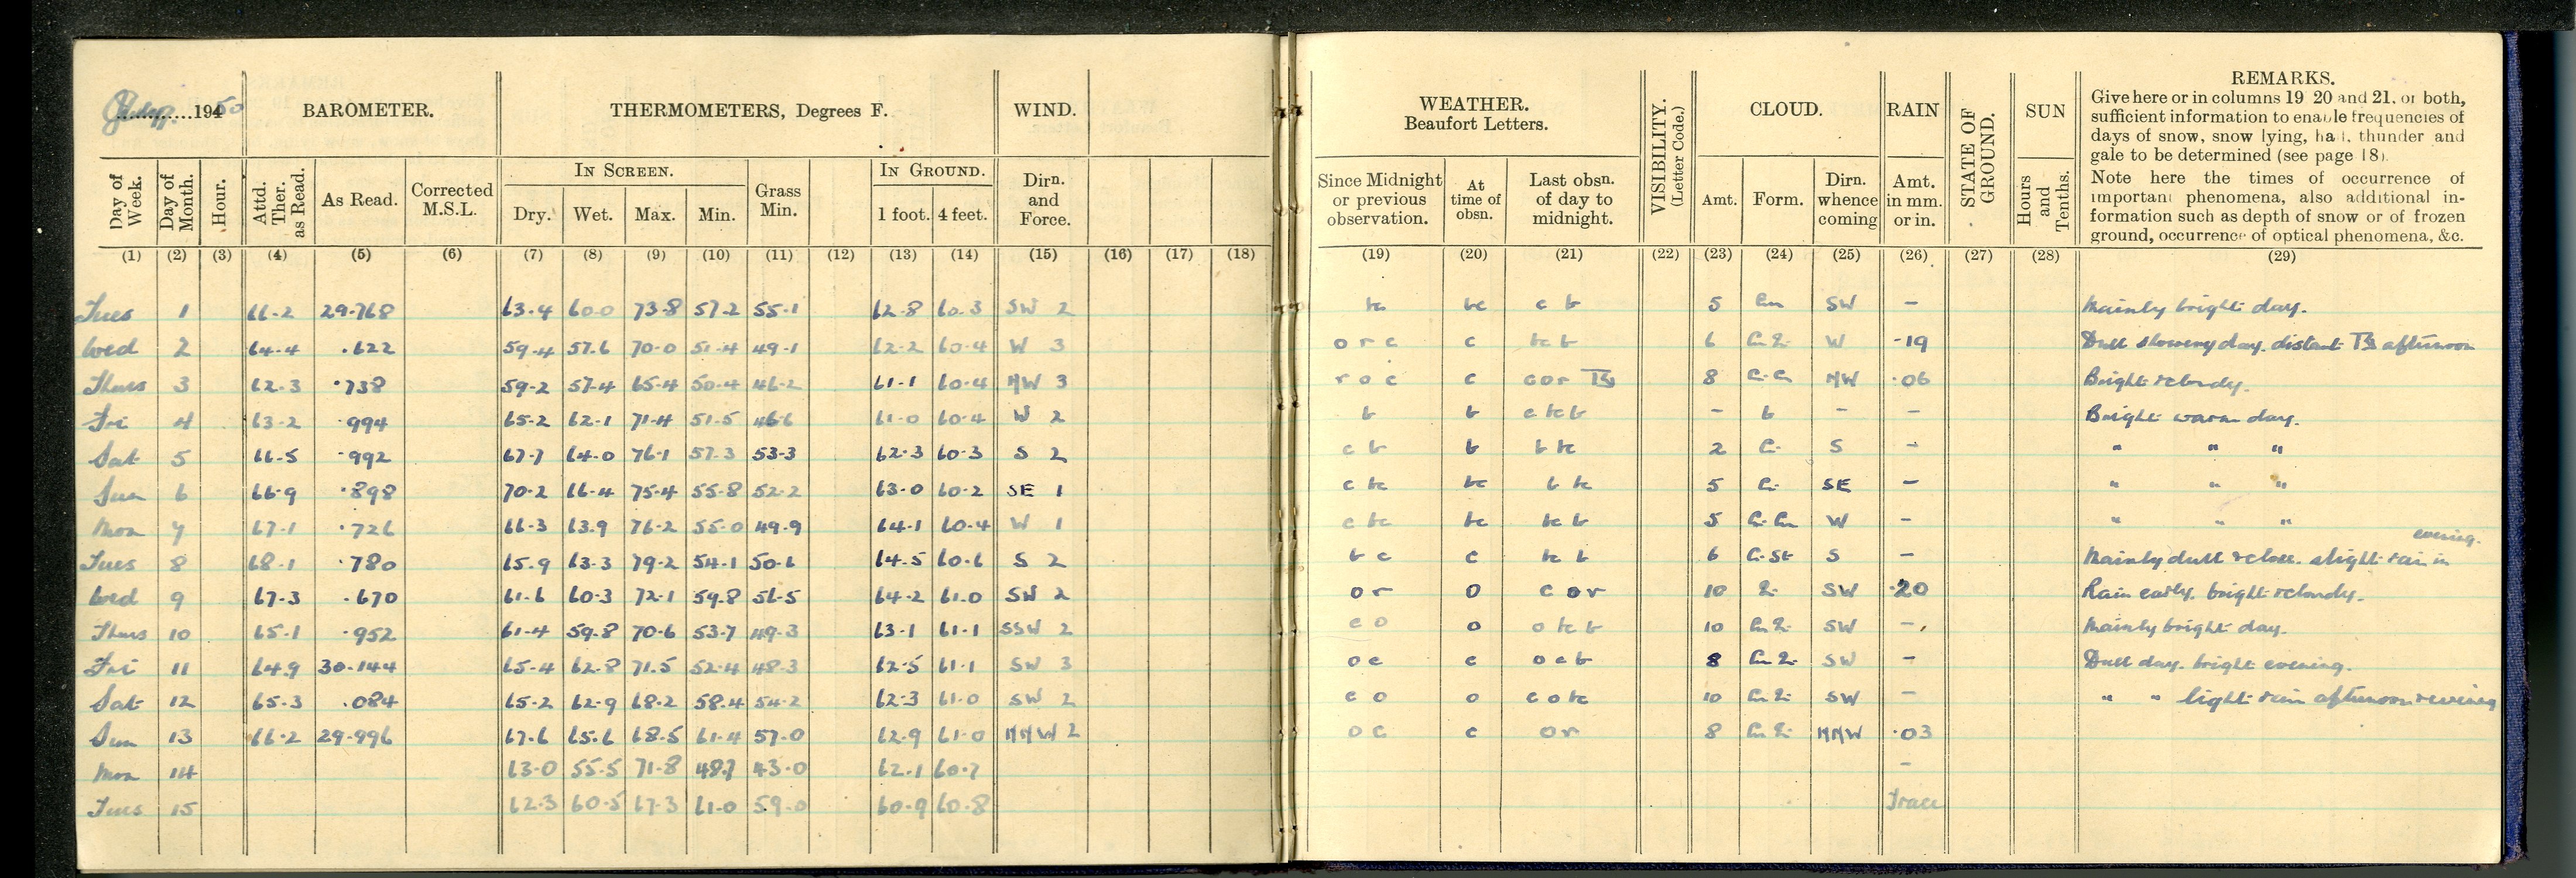 1950 BAROMETER. THERMOMETERS, Degrees F. WIND. WEATHER. Beaufort Letters. VISIBILITY. (Letter Code.) CLOUD. RAIN STATE OF GROUND. SUN REMARKS.
Give here or in columns 19 20 and 21, or both,
sufficient information to enable frequencies of
days of snow, snow lying, hail, thunder and
gale to be determined (see page 18).
Note here the times of occurrence of
important phenomena, also additional in-
formation such as depth of snow or of frozen
ground, occurrence of optical phenomena, &c.
IN SCREEN. IN GROUND.
Day of Week. Day of Month. Hour. Attd. Ther. as Read. As Read. Corrected M.S.L. Dry. Wet. Max. Min. Grass Min. 1 foot. 4 feet. Dirn. and Force. Since Midnight or previous observation. At time of obsn. Last obsn. of day to midnight. Amt. Form. Dirn. whence coming Amt. in mm. or in. Hours and Tenths.
(1) (2) (3) (4) (5) (6) (7) (8) (9) (10) (11) (12) (13) (14) (15) (16) (17) (18) (19) (20) (21) (22) (23) (24) (25) (26) (27) (28) (29)
Tues 1 66.2 29.768 63.4 60.0 73.8 57.2 55.1 62.8 60.3 SW 2 bc bc c b 5 Cu SW - Mainly bright day.
Wed 2 64.4 .622 59.4 57.6 70.0 51.4 49.1 62.2 60.4 W 3 o r c c bc b 6 W .19 Dull showery day. distant Ts afternoon
Thurs 3 62.3 .738 59.2 57.4 65.4 50.4 46.2 61.1 60.4 NW 3 r o c c c o r Ts 8 NW .06 Bright & cloudy.
Fri 4 63.2 .994 65.2 62.1 71.4 51.5 46.6 61.0 60.4 W 2 b b c bc b - b - - Bright warm day.
Sat 5 66.5 .992 67.7 64.0 76.1 57.3 53.3 62.3 60.3 S 2 c b b b bc 2 Ci S - " " "
Sun 6 66.9 .898 70.2 66.4 75.4 55.8 52.2 63.0 60.2 SE 1 c bc bc b bc 5 Ci SE - " " "
Mon 7 67.1 .726 66.3 63.9 76.2 55.0 49.9 64.1 60.4 W 1 c bc bc bc b 5 Ci Cu W - " " "
Tues 8 68.1 .780 65.9 63.3 79.2 54.1 50.6 64.5 60.6 S 2 b c c bc b 6 S - Mainly dull & close. slight rain in evening.
Wed 9 67.3 .670 61.6 60.3 72.1 59.8 56.5 64.2 61.0 SW 2 o r o c o r 10 SW .20 Rain early. bright & cloudy.
Thurs 10 65.1 .952 61.4 59.8 70.6 53.7 49.3 63.1 61.1 SSW 2 c o o o bc b 10 SW - Mainly bright day.
Fri 11 64.9 30.144 65.4 62.8 71.5 52.4 48.3 62.5 61.1 SW 3 o c c o c b 8 SW - Dull day. bright evening.
Sat 12 65.3 .084 65.2 62.9 68.2 58.4 54.2 62.3 61.0 SW 2 c o o c o bc 10 SW - " " light rain afternoon & evening
Sun 13 66.2 29.996 67.6 65.6 68.5 61.4 57.0 62.9 61.0 NNW 2 o c c o r 8 NNW .03
Mon 14 63.0 55.5 71.8 48.7 43.0 62.1 60.7 -
Tues 15 62.3 60.5 67.3 61.0 59.0 60.9 60.8 Trace